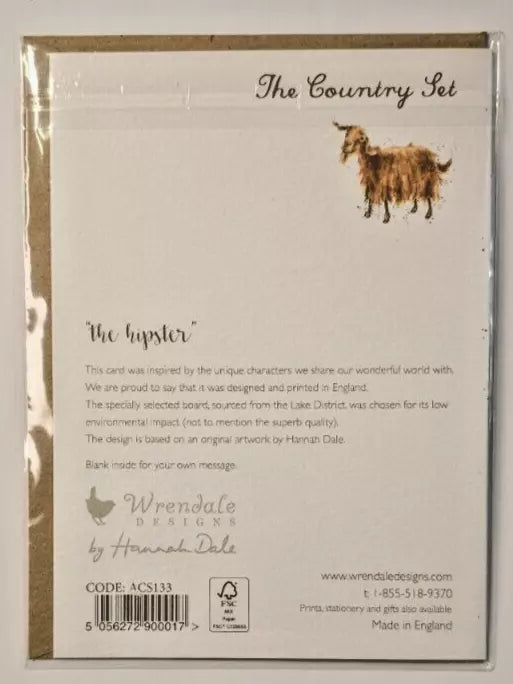 The Country Set
"the hipster"
This card was inspired by the unique characters we share our wonderful world with.
We are proud to say that it was designed and printed in England.
The specially selected board, sourced from the Lake District, was chosen for its low
environmental impact (not to mention the superb quality).
The design is based on an original artwork by Hannah Dale.
Blank inside for your own message.
Wrendale
DESIGNS
by Hannah Dale
CODE: ACS133
5 056272 900017 >
FSC
MIX
Paper
www.wrendaledesigns.com
t: 1-855-518-9370
Prints, stationery and gifts also available
Made in England